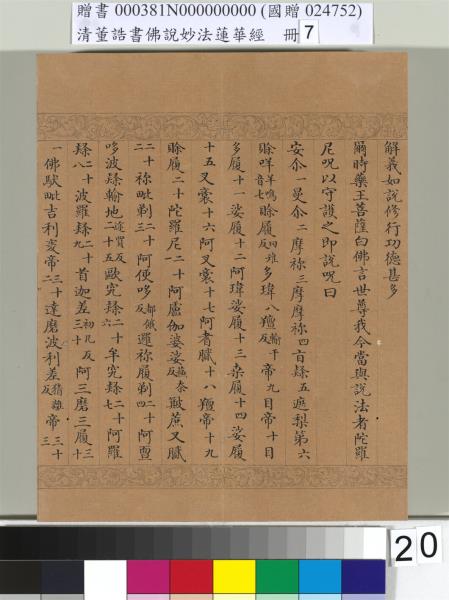 贈書 000381N000000000 (國贈 024752)
清董誥書佛說妙法蓮華經 冊 7
解義如說修行功德甚多
爾時藥王菩薩白佛言世尊我今當與說法者陀羅
尼呪以守護之即說呪曰
安尒一曼尒二摩祢三摩摩祢四旨隸五遮梨第六
賒咩羊鳴音七賒履反雉多瑋八羶輸千反帝九目帝十目
多履十一娑履十二阿瑋娑履十三桑履十四娑履
十五叉裔十六阿叉裔十七阿耆膩十八羶帝十九
賒履二十陀羅尼二十一阿盧伽婆娑反蔗奈簸蔗毗叉膩
二十二祢毗剃二十三阿便哆都餓反邏祢履剃二十四阿亶
哆波隸輸地途賣反二十五歐究隸二十六牟究隸二十七阿羅
隸二十八波羅隸二十九首迦差初几反三十阿三磨三履三十
一佛馱毗吉利袠帝三十二達磨波利差猜離反帝三十三
20